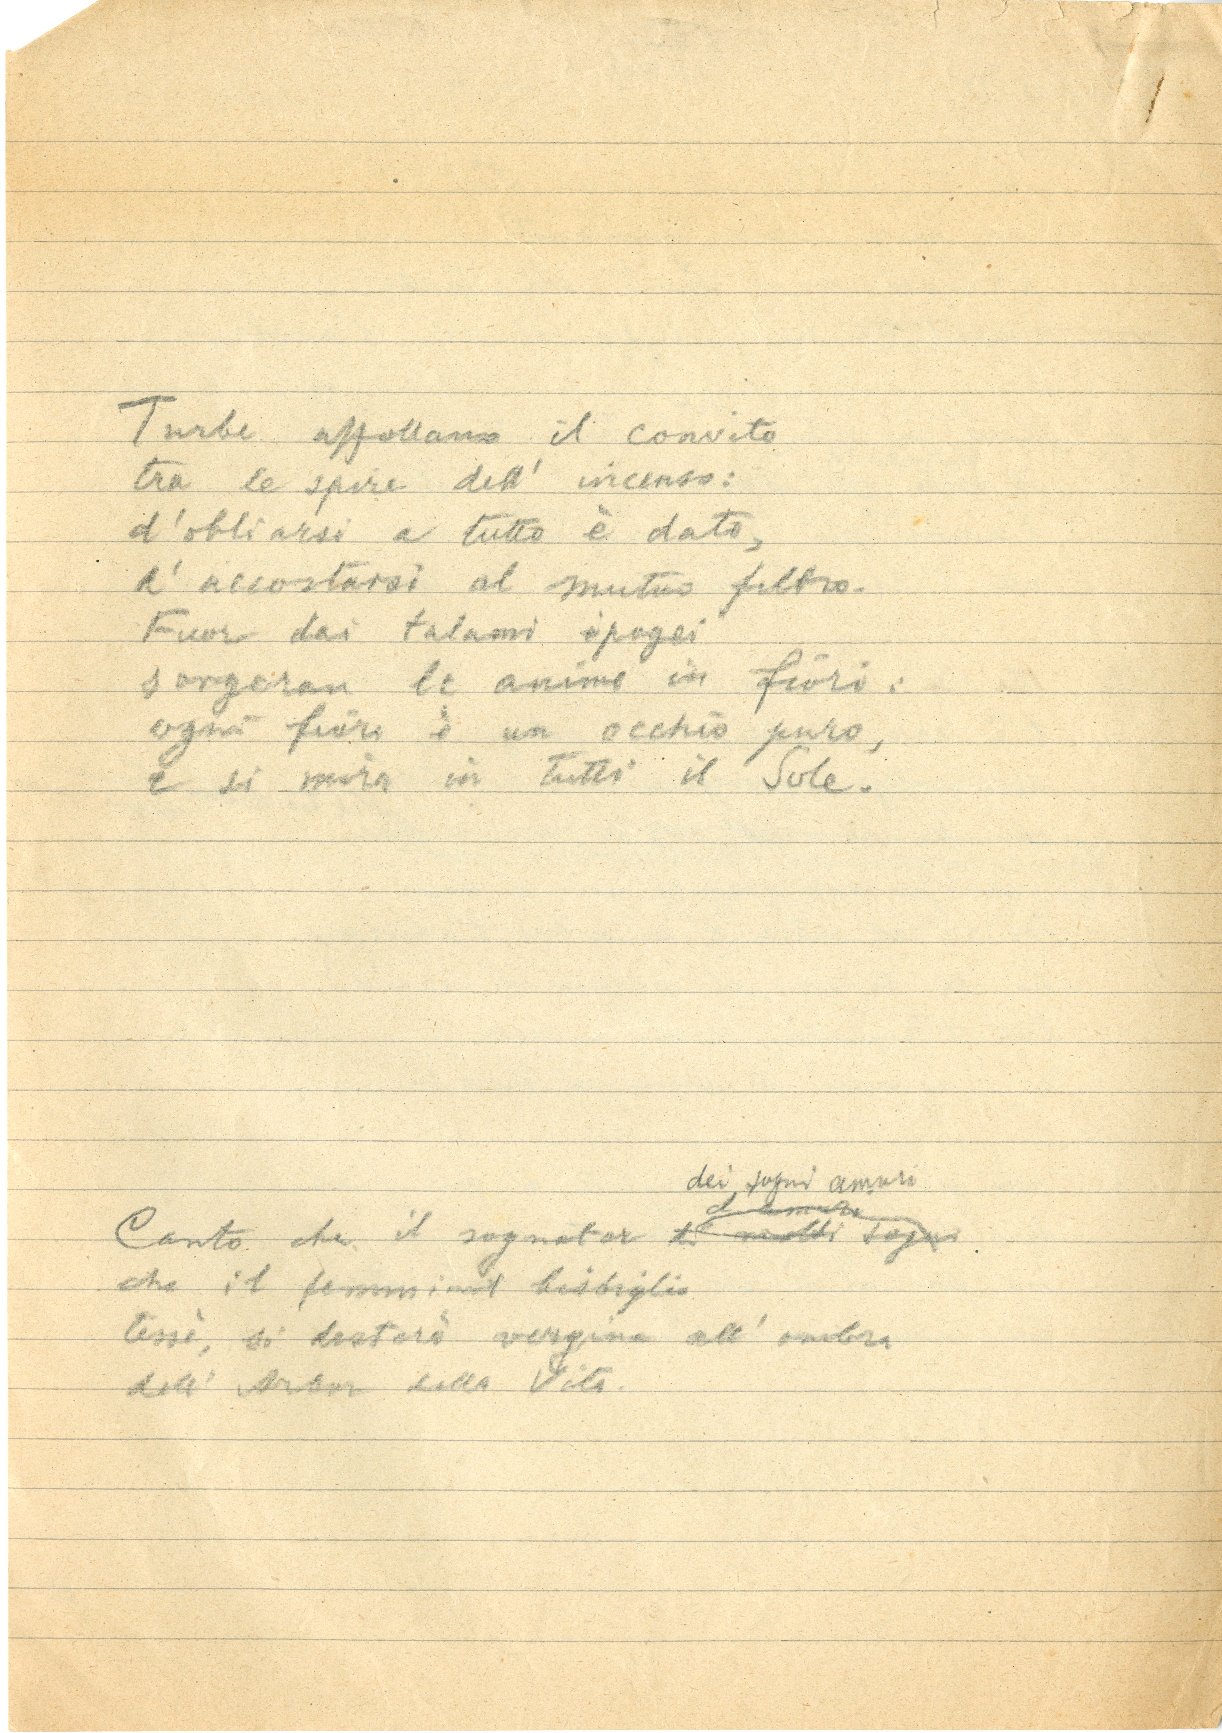 Turbe affollano il convito
tra le spire dell' incenso:
d'obliarsi a tutto è dato,
d' accostarsi al mutuo filtro.
Fuor dai talami ipogei
sorgeran le anime in fiori:
ogni fiore è un occhio puro,
e si mira in tutti il Sole.
dei sogni amari
d' amari
Canto che il sognator di molti sogni
che il femminil bisbiglio
tessè, si desterà vergine all' ombra
dell' Arbor della Vita.